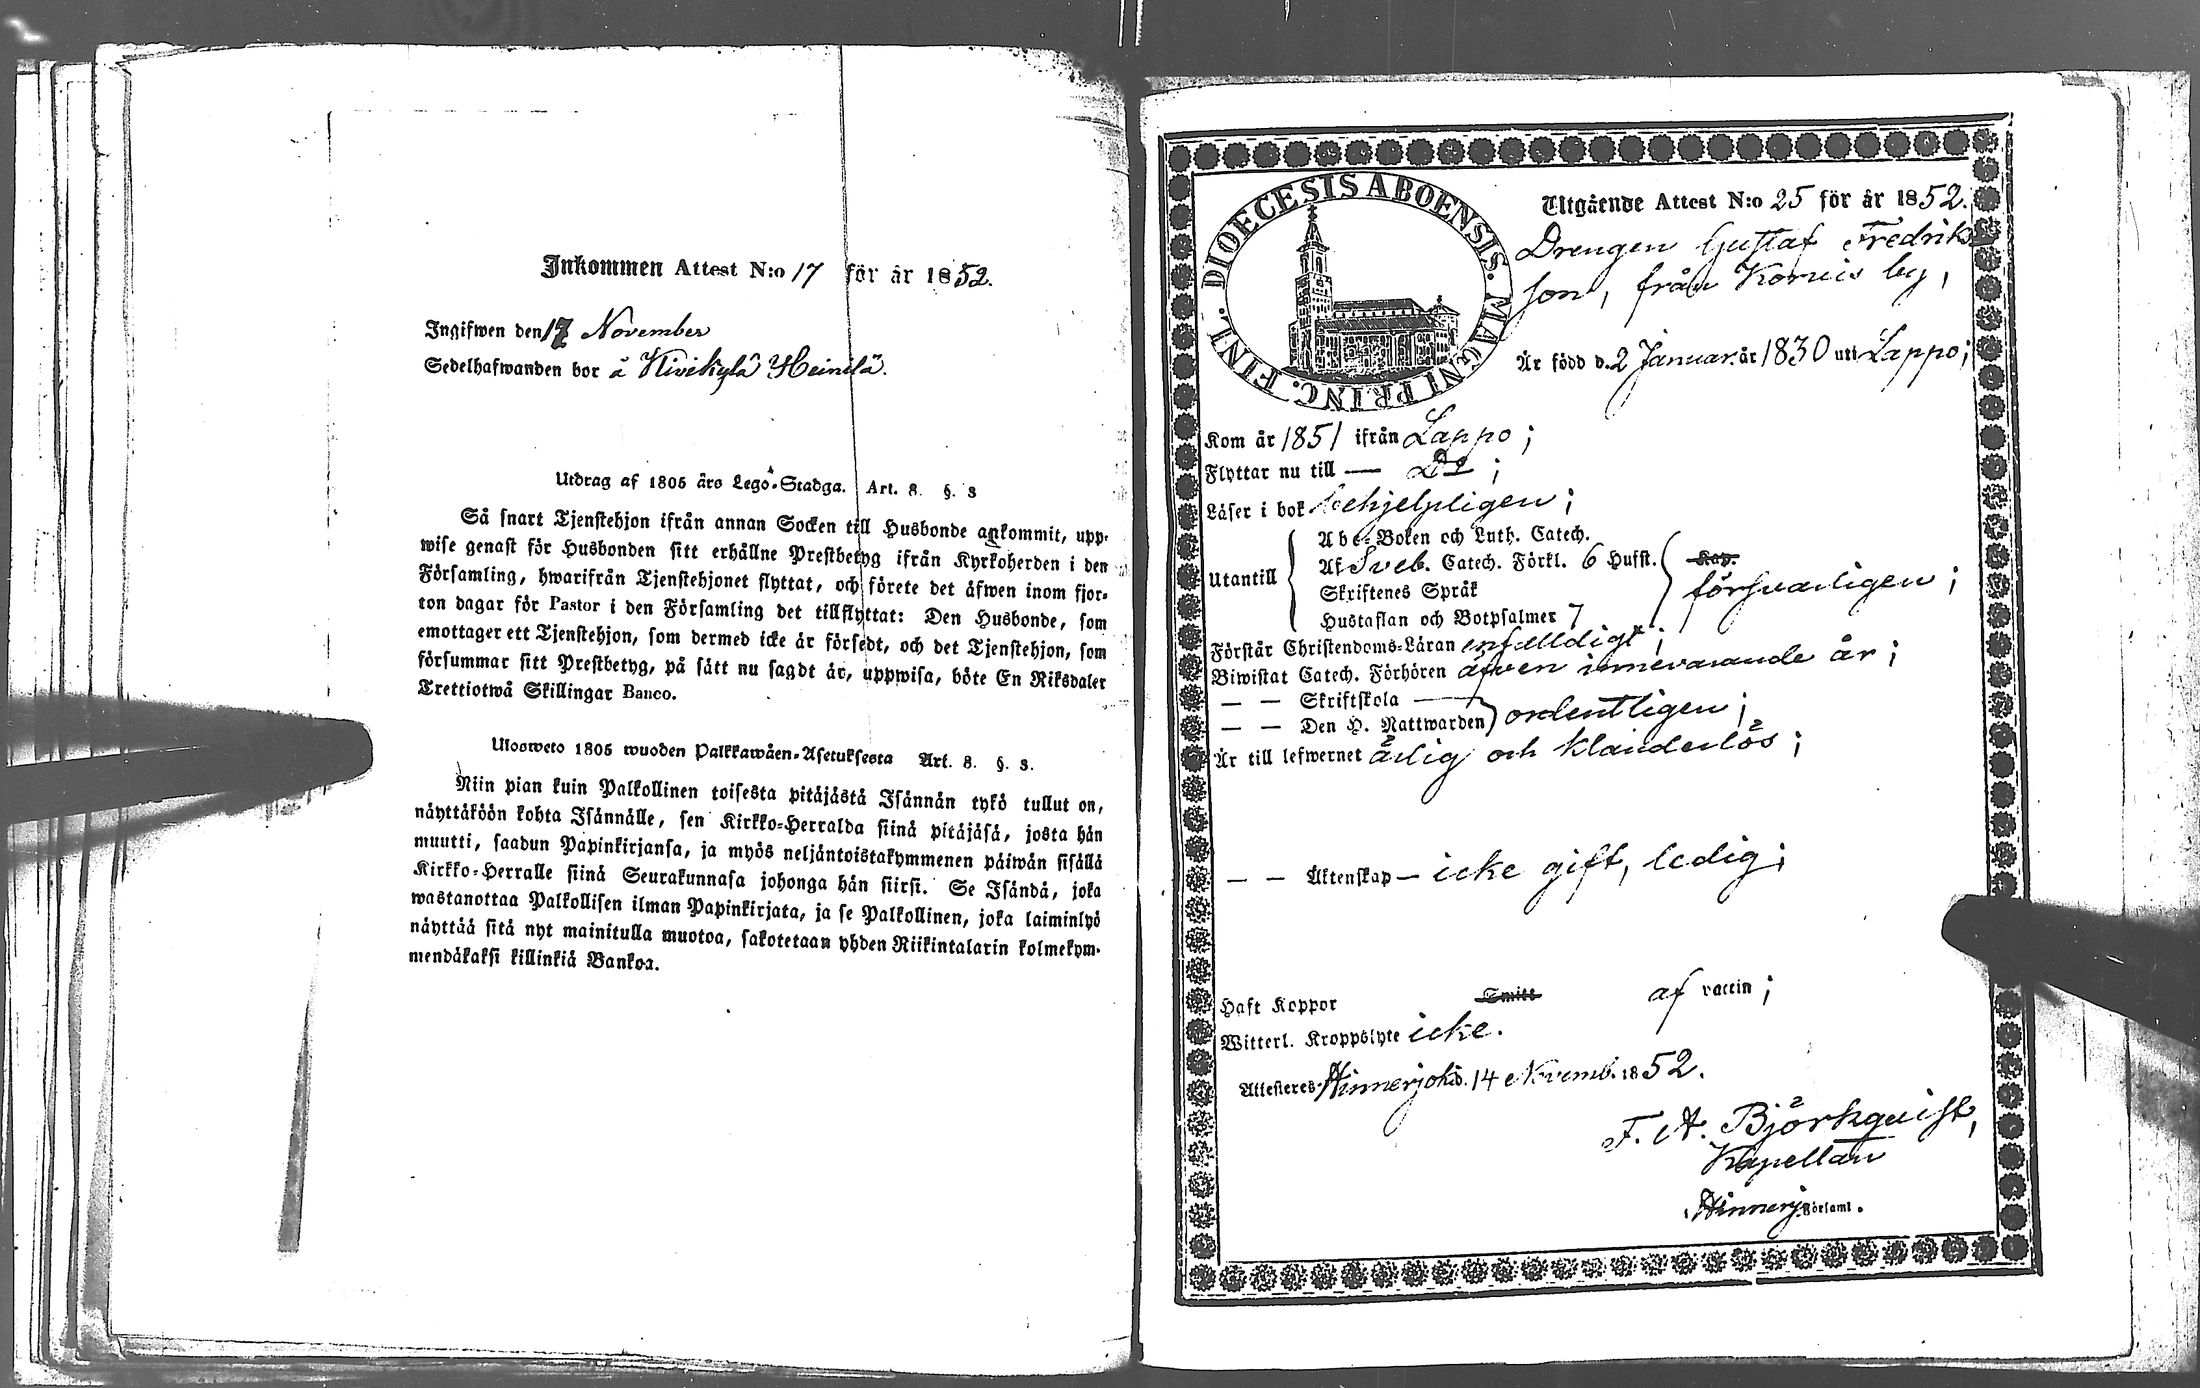 Inkommen Attest N:o 17 för år 1852.
Ingifwen den 17 November
Sedelhafwanden bor å Kivikylä Heinilä.
Utdrag af 1805 års Lego-Stadga. Art. 8. §. 3
Så snart Tjenstehjon ifrån annan Socken till Husbonde ankommit, upp-
wise genast för Husbonden sitt erhållne Prestbetyg ifrån Kyrkoherden i den
Församling, hwarifrån Tjenstehjonet flyttat, och förete det äfwen inom fjor-
ton dagar för Pastor i den Församling det tillflyttat: Den Husbonde, som
emottager ett Tjenstehjon, som dermed icke är försedt, och det Tjenstehjon, som
försummar sitt Prestbetyg, på sätt nu sagdt är, uppwisa, böte En Riksdaler
Trettiotwå Skillingar Banco.
Ulosweto 1805 wuoden Palkkawäen-Asetuksesta Art. 8. §. 3.
Niin pian kuin Palkollinen toisesta pitäjästä Isännän tykö tullut on,
näyttäköön kohta Isännälle, sen Kirkko-Herralda siinä pitäjäsä, josta hän
muutti, saadun Papinkirjansa, ja myös neljäntoistakymmenen päiwän sisällä
Kirkko-Herralle siinä Seurakunnasa johonga hän siirsi. Se Isändä, joka
wastanottaa Palkollisen ilman Papinkirjata, ja se Palkollinen, joka laiminlyö
näyttää sitä nyt mainitulla muotoa, sakotetaan yhden Riikintalarin kolmekym-
mendäkaksi killinkiä Bankoa.
DIOECESIS ABOENSIS. MAGNI PRINC. FINL.
Utgående Attest N:o 25 för år 1852.
Drengen Gustaf Fredriks
son, från Korvis by,
Är född d. 2 Januar. år 1830 uti Lappo;
Kom år 1851 ifrån Lappo;
Flyttar nu till — Do ;
Läser i bok behjelpligen;
Abc-Boken och Luth. Catech.
Af Sveb. Catech. Förkl. 6 Hufst. Kap.
Utantill Skriftenes Språk försvarligen;
Hustaflan och Botpsalmer 7
Förstår Christendoms-Läran enfaldigt;
Biwistat Catech. Förhören äfven innevarande år;
— — Skriftskola —
— — Den H. Nattwarden ordentligen;
Är till lefwernet ärlig och klanderlös;
— — Äktenskap — icke gift, ledig;
Haft Koppor Smitt af vaccin;
Witterl. Kroppslyte icke.
Attesteres Hinnerjoki d. 14 Novemb. 1852.
F. A. Björkquist,
Kapellan
Hinnerj. Församl.